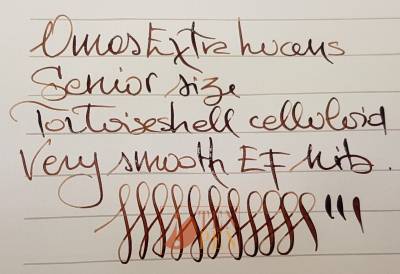 Omas Extra Lucens
Senior size
Tortoiseshell celluloid
Very smooth EF nib.